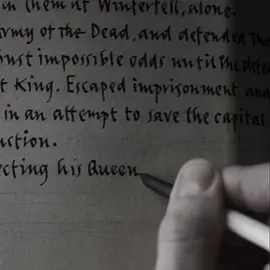 in them at Winterfell, alone.
Army of the Dead, and defended the
impossible odds until the
King. Escaped imprisonment and
in an attempt to save the capital
his Queen